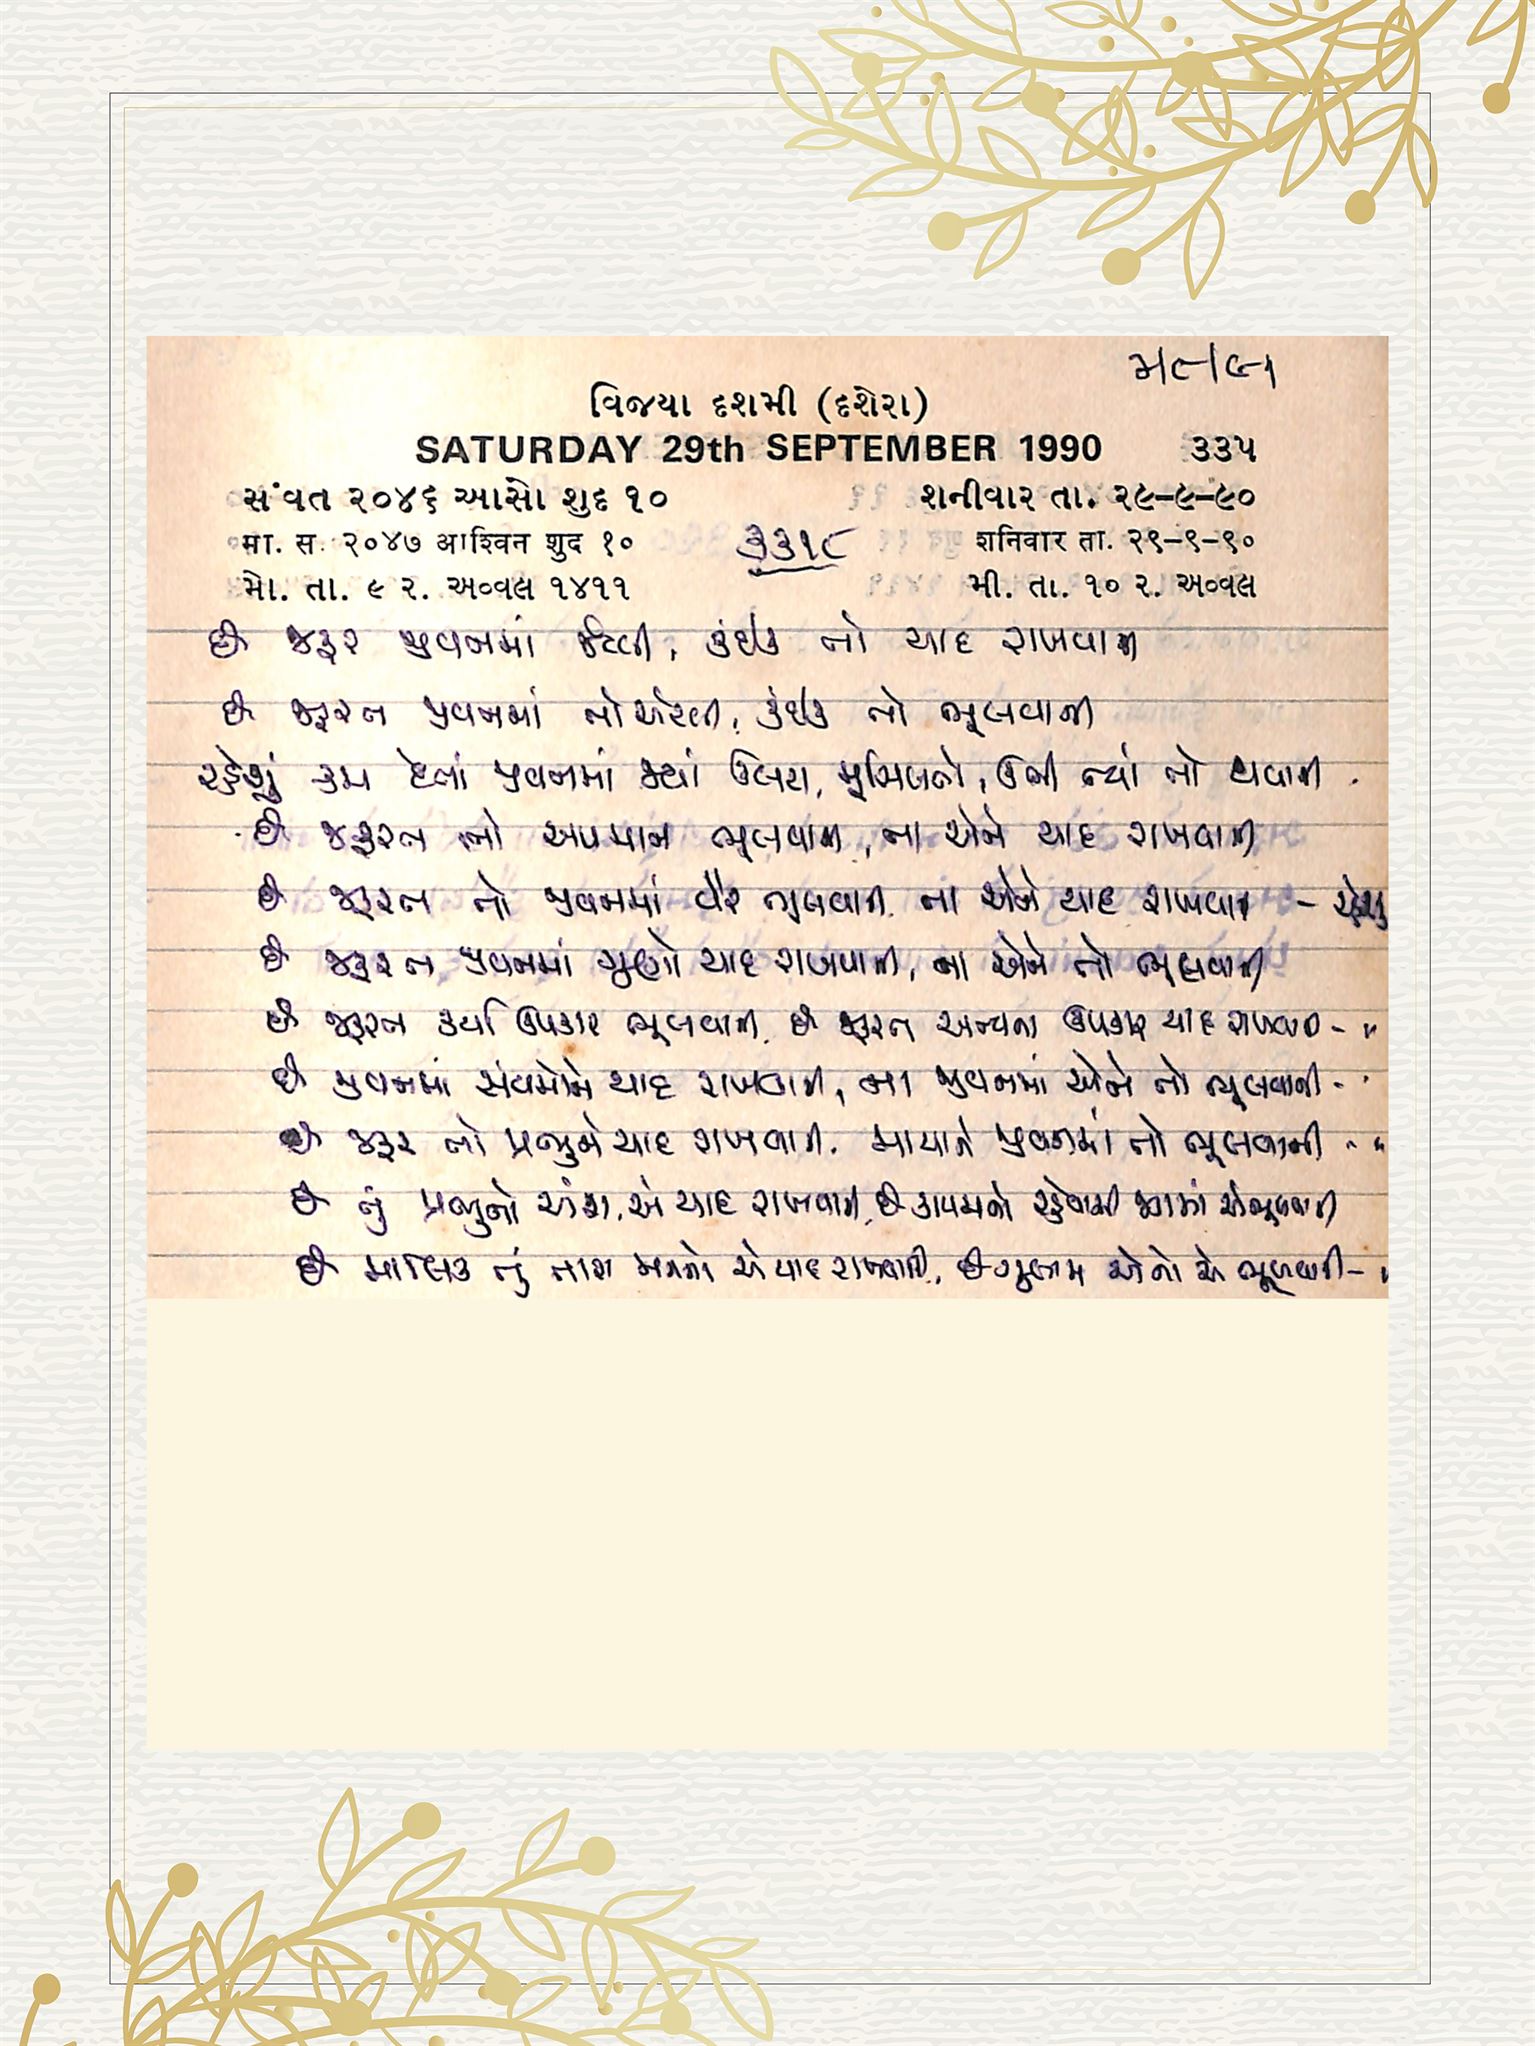 વિજયા દશમી (દશેરા)
SATURDAY 29th SEPTEMBER 1990 ૩૩૫
સંવત ૨૦૪૬ આસો શુદ ૧૦ શનીવાર તા. ૨૯-૯-૯૦
मा. स. २०४७ आश्विन शुद १० ૩૩૧૮ शनिवार ता. २९-९-९०
મો. તા. ૯ ર. અવ્વલ ૧૪૧૧ મી. તા. ૧૦ ર. અવ્વલ
છે જરૂર જીવનમાં જેટલી, કંઈક તો યાદ રાખવાની
છે જરૂરત જીવનમાં તો એટલી, કંઈક તો ભૂલવાની
રહેશું કામ દેતાં જીવનમાં જ્યાં ઉલટા, મુસીબતો, ઊભી ત્યાં તો થવાની
છે જરૂરત તો અપમાન ભૂલવાની, ના એને યાદ રાખવાની
છે જરૂરત તો જીવનમાં વૈર ભુલવાની ના એને યાદ રાખવાની - રહેશું
છે જરૂરત જીવનમાં ગુણો યાદ રાખવાની, ના એને તો ભૂલવાની
છે જરૂરત કર્યા ઉપકાર ભૂલવાની, છે જરૂરત અન્યના ઉપકાર યાદ રાખવાની - "
છે જીવનમાં સંયમોને યાદ રાખવાની, ના જીવનમાં એને તો ભૂલવાની - "
છે જરૂર તો પ્રભુને યાદ રાખવાની. માયાને જીવનમાં તો ભૂલવાની - "
છે તું પ્રભુનો અંશ, એ યાદ રાખવાની, છે કાયમનો રહેવાસી જગમાં એ ભૂલવાની
છે માલિક તું તારા મનનો એ યાદ રાખવાની, છે ગુલામ એનો એ ભૂલવાની - "